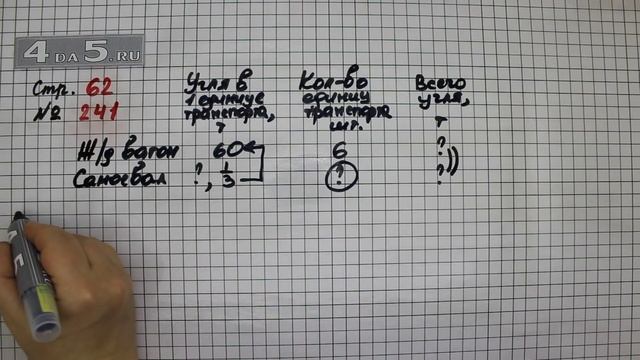 4DA5.RU
Стр. 62
№ 241
Угля в 1 единице транспорта, т
Кол-во единиц транспорта шт.
Всего угля, т
Ж/д вагон 60 6 ?
Самосвал ?, 1/3 ? ?